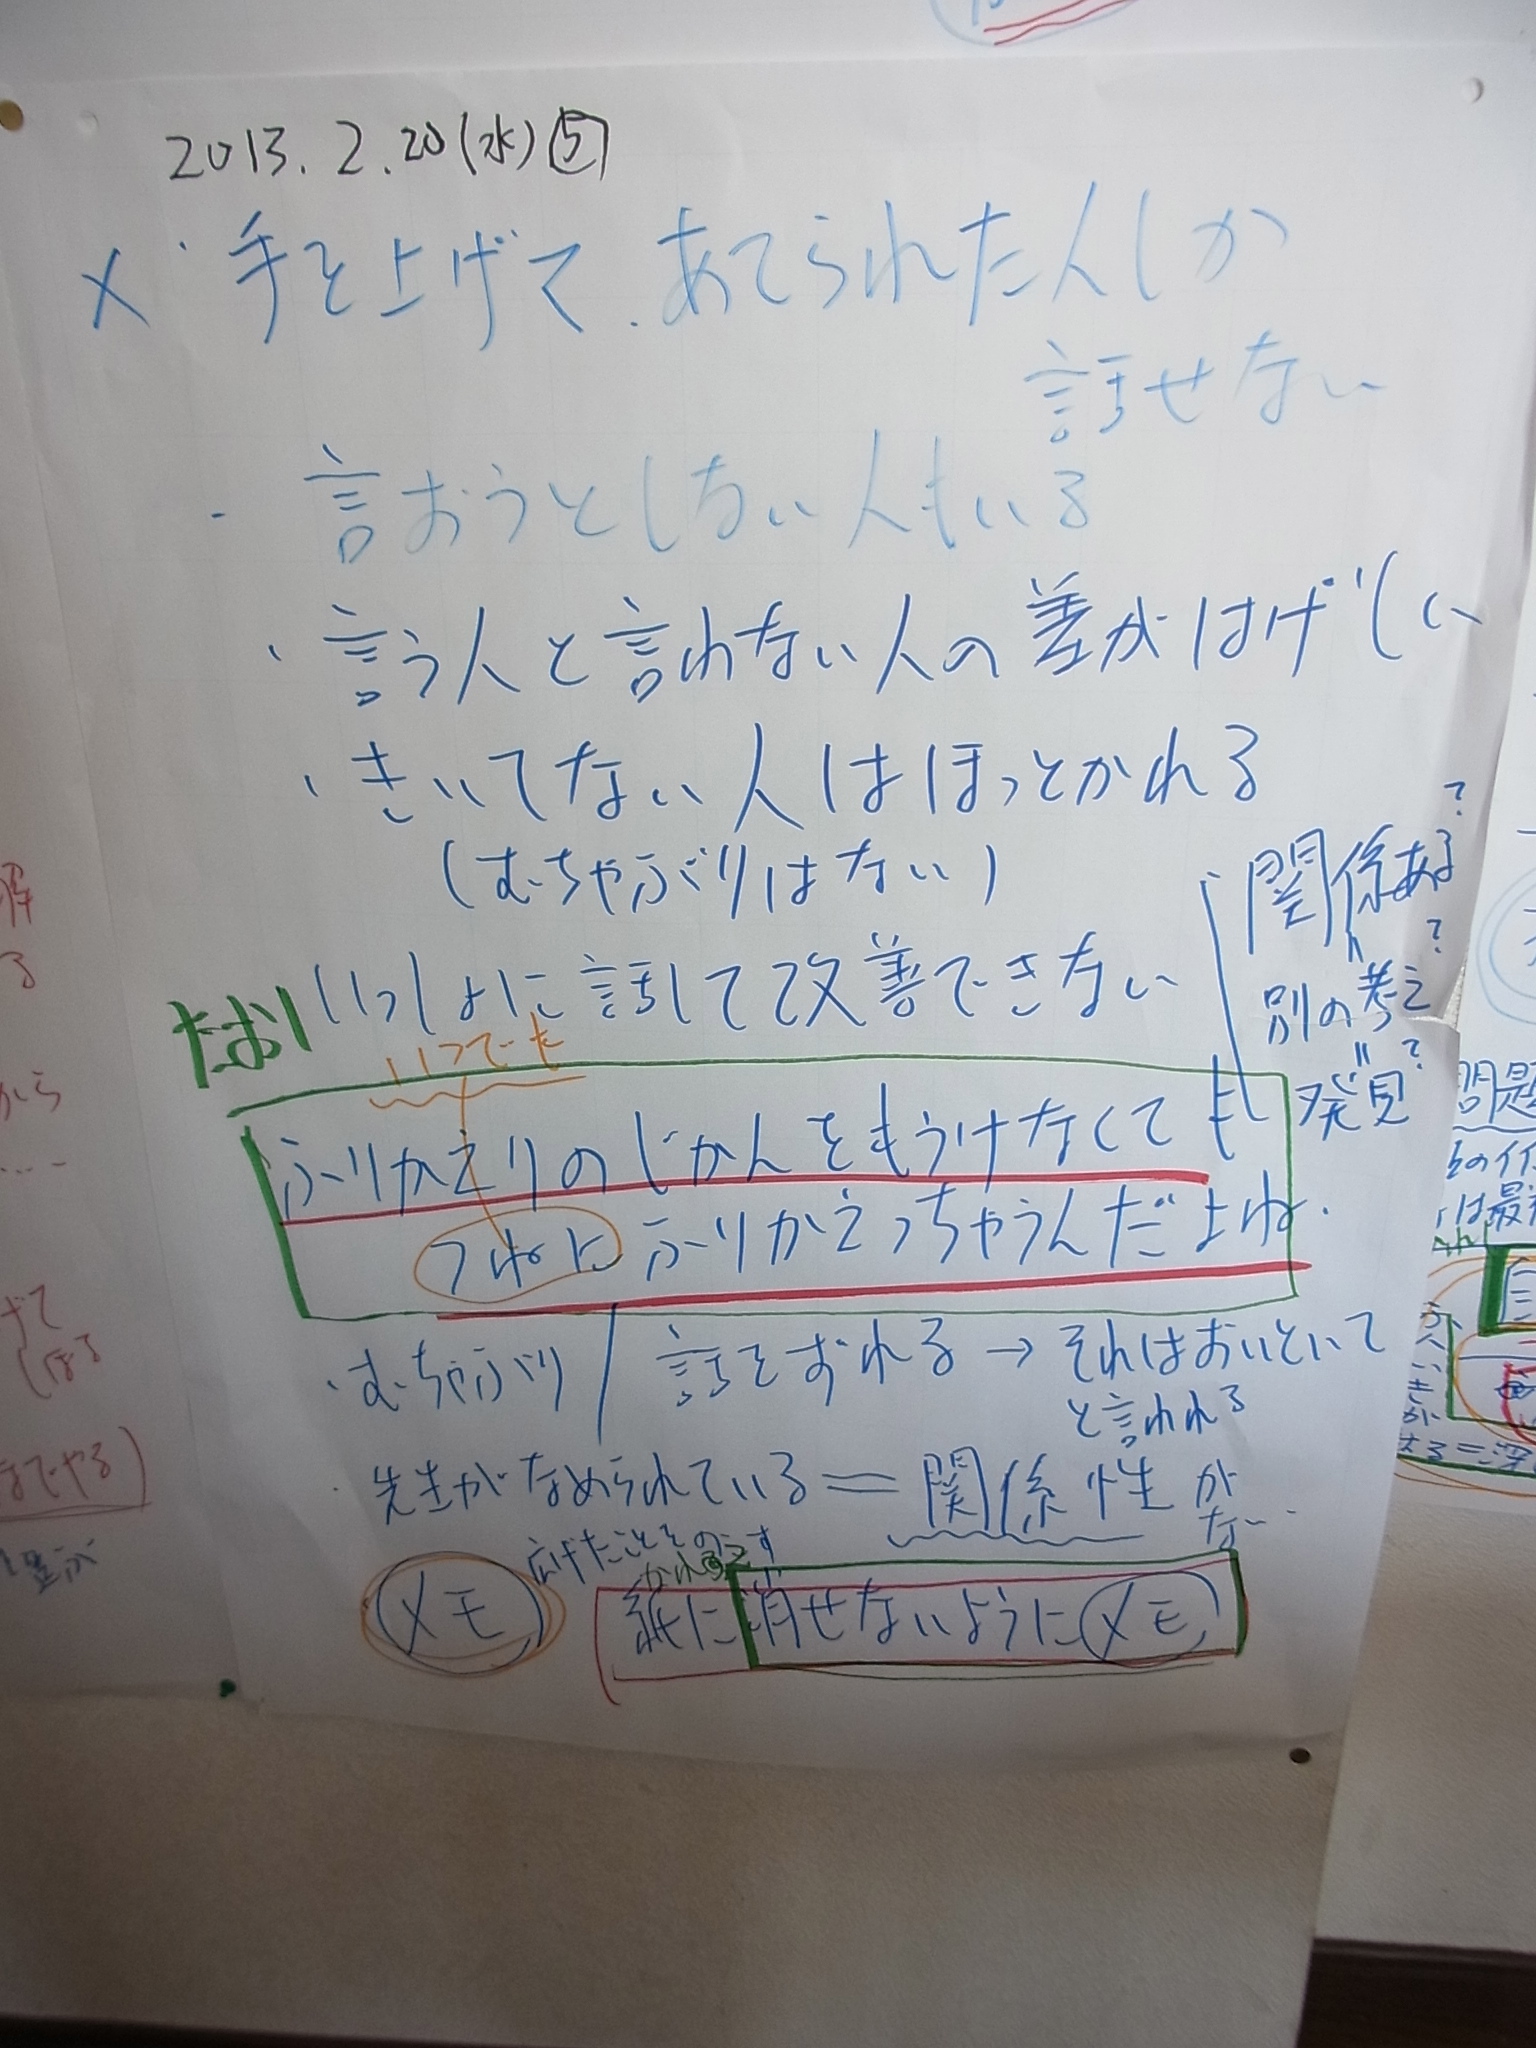 2013.2.20(水)⑤
× ・手を上げて、あてられた人しか
話せない
・言おうとしない人もいる
・言う人と言れない人の差がはげしい
・きいてない人はほっとかれる
(むちゃぶりはない)
いっしょに話して改善できない
関係ある?
〃 ?
別の考え
〃 ?
発見
たおり
いつでも
ふりかえりのじかんをもうけなくても
つねにふりかえっちゃうんだよね.
・むちゃぶり/話をずれる→それはおいといて
と言われる
・先生がなめられている=関係性が
ない…
メモ
広げたことをのこす
紙に消せないようにメモ
問題
解
る
から
げて
までやる)